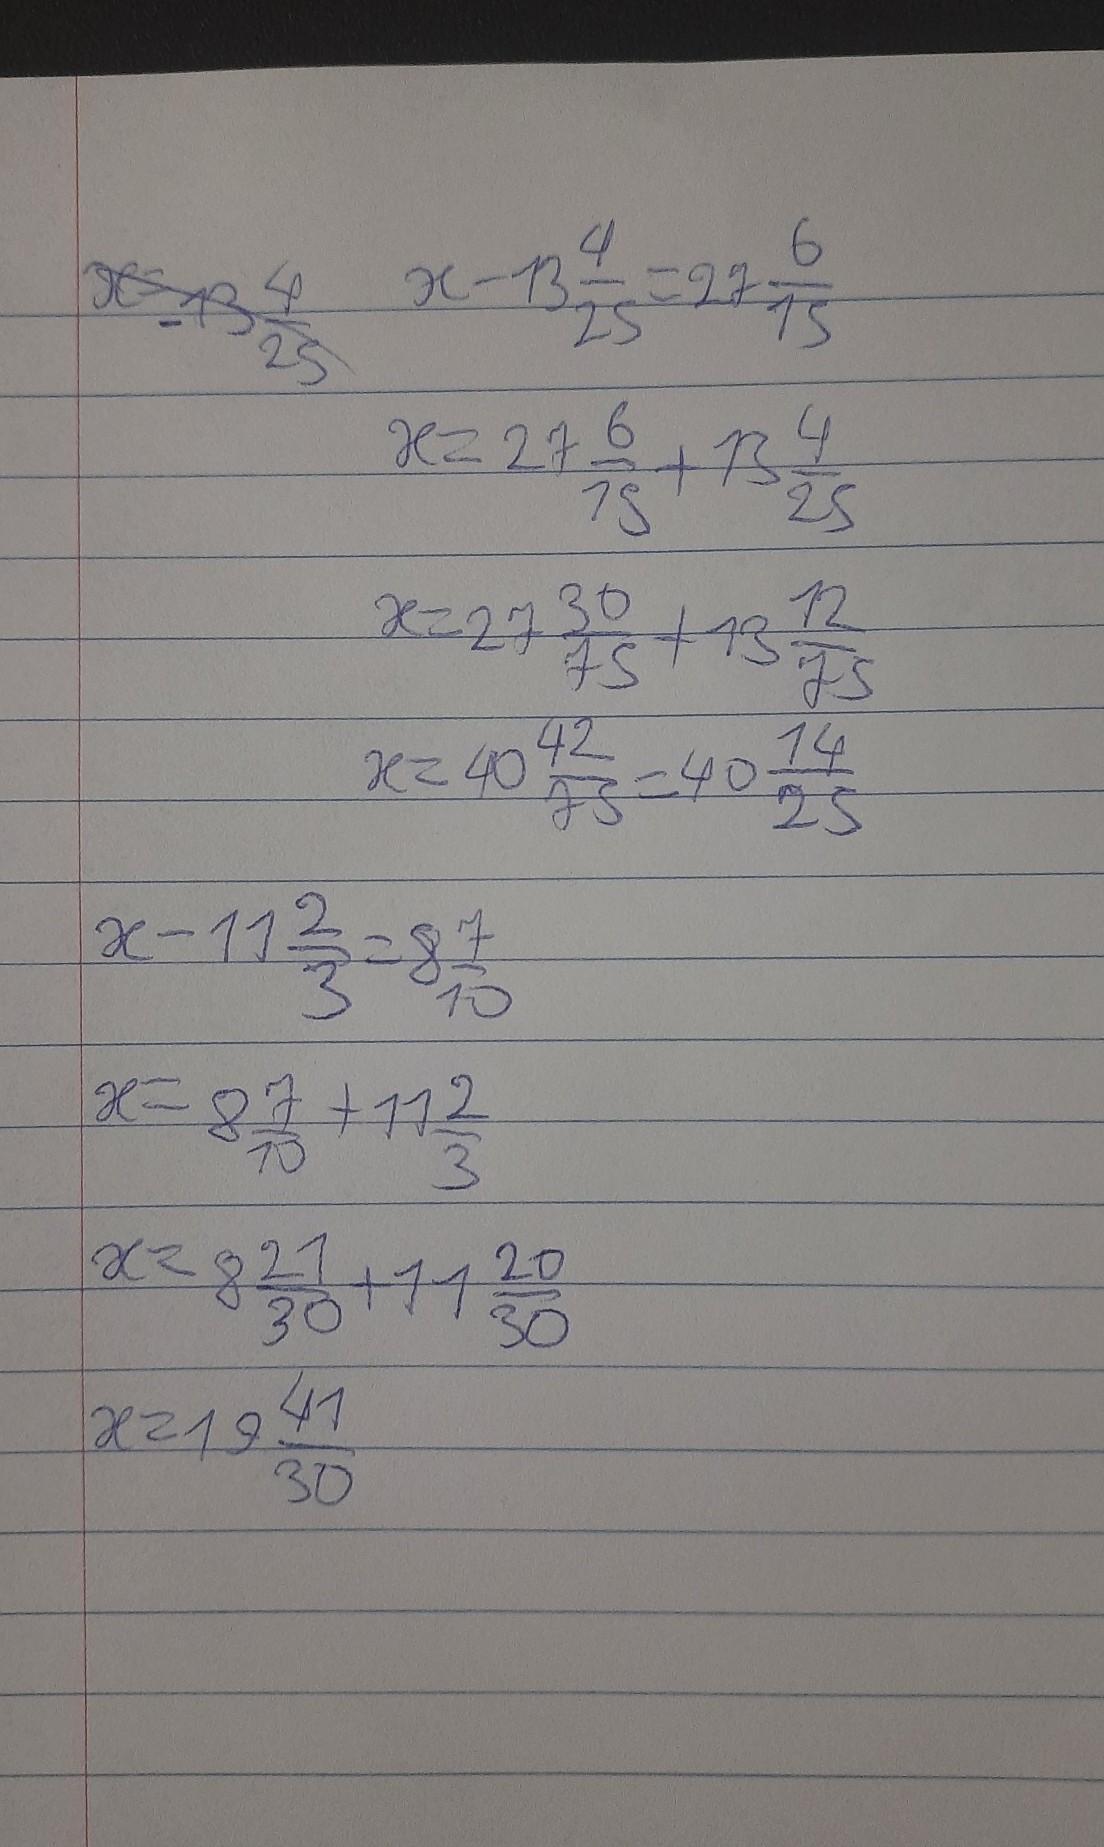 x=-13 4/25
x-13 4/25=27 6/15
x=27 6/15+13 4/25
x=27 30/75+13 12/75
x=40 42/75=40 14/25
x-11 2/3=8 7/10
x=8 7/10+11 2/3
x=8 21/30+11 20/30
x=19 41/30